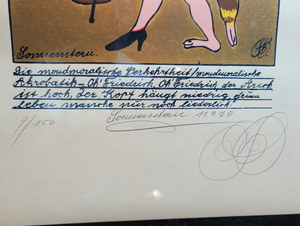 Sonnenstern.
Die moudmoralische Verkehrtheit/moudmoralische
Akrobatik – Oh' Friedrich, Oh' Friedrich, der Arsch
ist hoch, der Kopf hängt niedrig, drum
leben manche nur noch liederlich.
9/150
Sonnenstern 1970